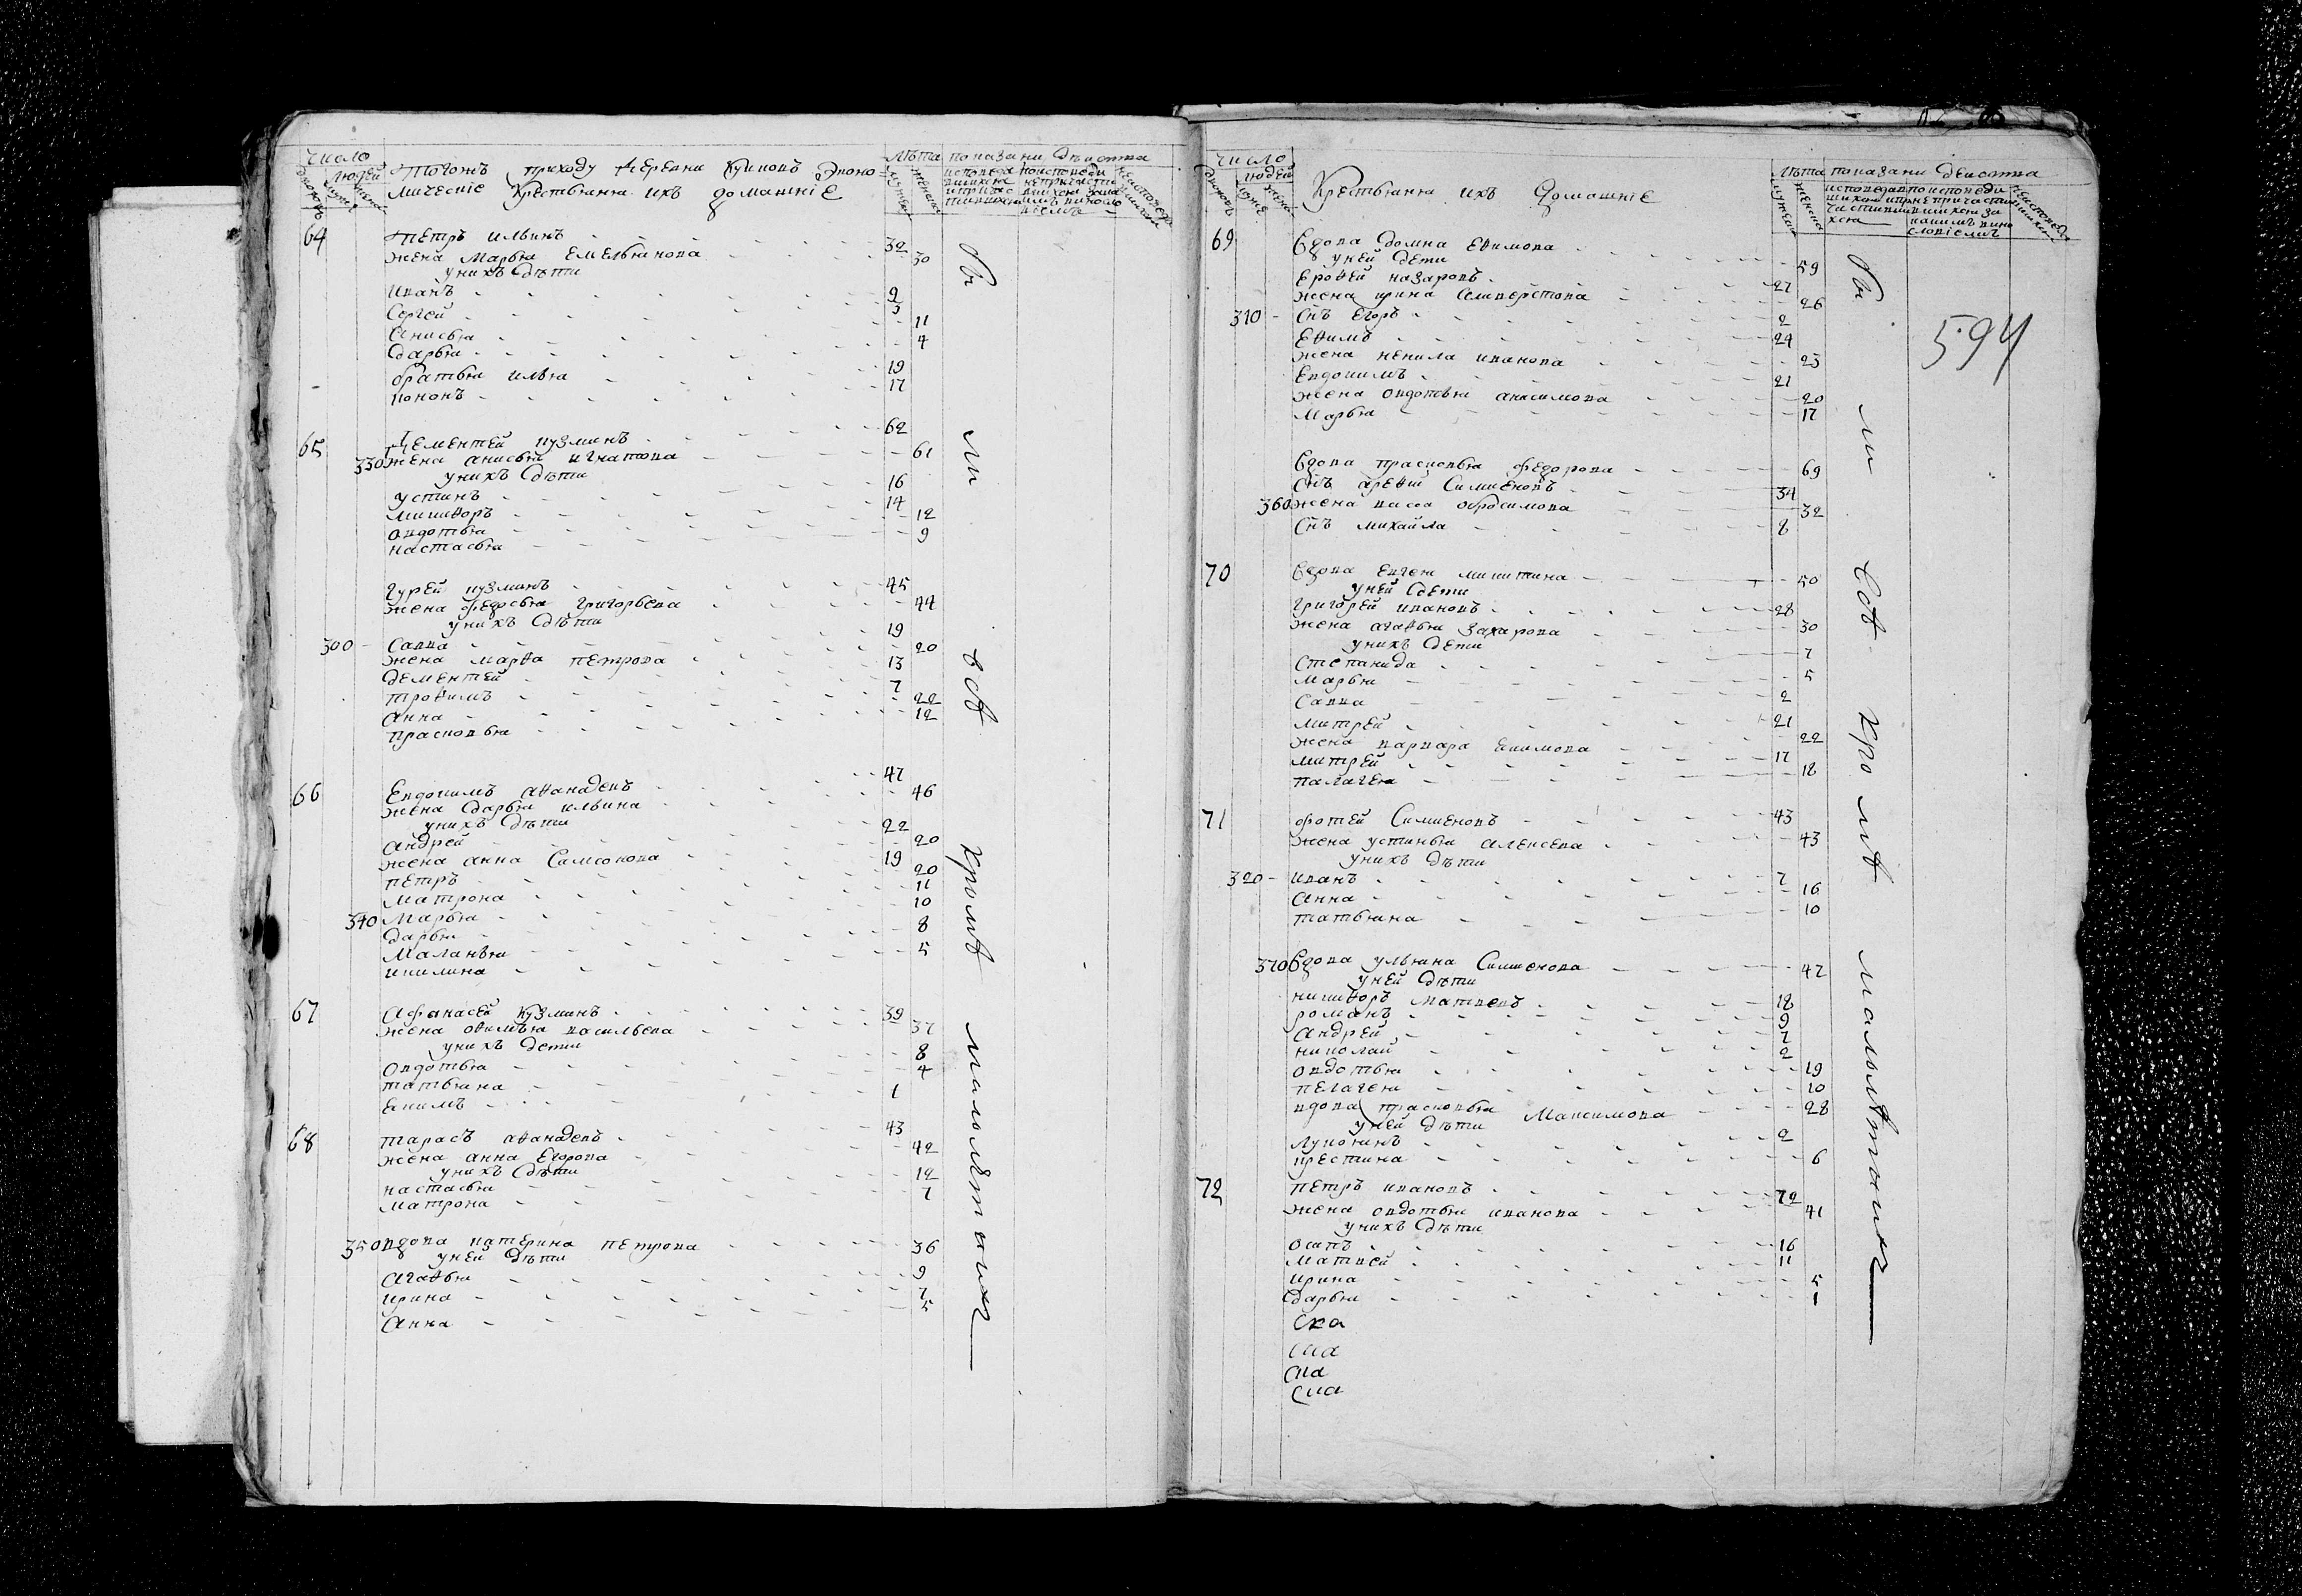 число
людей
Тогожъ приходу деревни Куиковъ Эконо
мическіе Крестьяння ихъ домашніе
Лѣта показани Дѣиства
64 Петръ ильинъ 32
жена Марья Емельянова 30
у нихъ дѣти
Иванъ 9
Сергей 3
Анисья 11
Дарья 4
братья илья 19
кононъ 17
65 Дементей кузминъ 62
330 жена анисья игнатова 61
у нихъ дѣти
устинъ 16
микиѳоръ 14
овдотья 12
настасья 9
Гурей кузминъ 45
жена федосья григорьева 44
у нихъ дѣти
300 Савва 19
жена марѳа петрова 20
дементей 13
троѳимъ 7
анна 22
прасковья 12
66 Евдокимъ аѳанасевъ 47
жена дарья ильина 46
у нихъ дѣти
андрей 22
жена анна Самсонова 20
петръ 19
матрона 20
340 Марья 11
дарья 10
Маланья 8
акилина 5
67 Афанасей кузминъ 39
жена овимья васильева 37
у нихъ дети
Овдотья 8
татьяна 4
Екимъ 1
68 тарасъ аѳанасевъ 43
жена анна Егорова 42
у нихъ дѣти
настасья 12
матрона 7
350 вдова катерина петрова 36
у ней дѣти
Агаѳья 9
ирина 7
Анна 5
бы ли всѣ кромѣ малолѣтнихъ
число
людей
Крестьяння ихъ Домашніе
Лѣта показани Дѣиства
594
69 Вдова домна евимова 59
у ней дети
Ероѳей назаровъ 27
жена ирина Селиверстова 26
310 Снъ Егоръ 2
Евимъ 24
жена ненила иванова 23
Евдокимъ 21
жена овдотья анисимова 20
Марья 17
Вдова прасковья федорова 69
Снъ ареѳий Симионовъ 34
360 жена васса обросимова 32
Снъ михайла 8
70 Вдова Евгея микитина 50
у ней дети
Григорей ивановъ 28
жена агаѳья захарова 30
у нихъ дети
Степанида 7
Марья 5
Савва 2
митрей 21
жена варвара екимова 22
митрей 17
палагея 18
71 фотей Симионовъ 43
жена устинья алексева 43
у нихъ дѣти
320 иванъ 7
анна 16
татьяна 10
370 Вдова ульяна Симионова 47
у ней дѣти
никиѳоръ матвевъ 18
романъ 9
Андрей 7
николай 2
овдотья 19
пелагея 10
вдова прасковья Максимова 28
у ней дѣти
Лукоянъ 2
крестина 6
72 петръ ивановъ 72
жена овдотья иванова 41
у нихъ дѣти
осипъ 16
матвей 11
ирина 5
дарья 1
бы ли всѣ кромѣ малолѣтнихъ